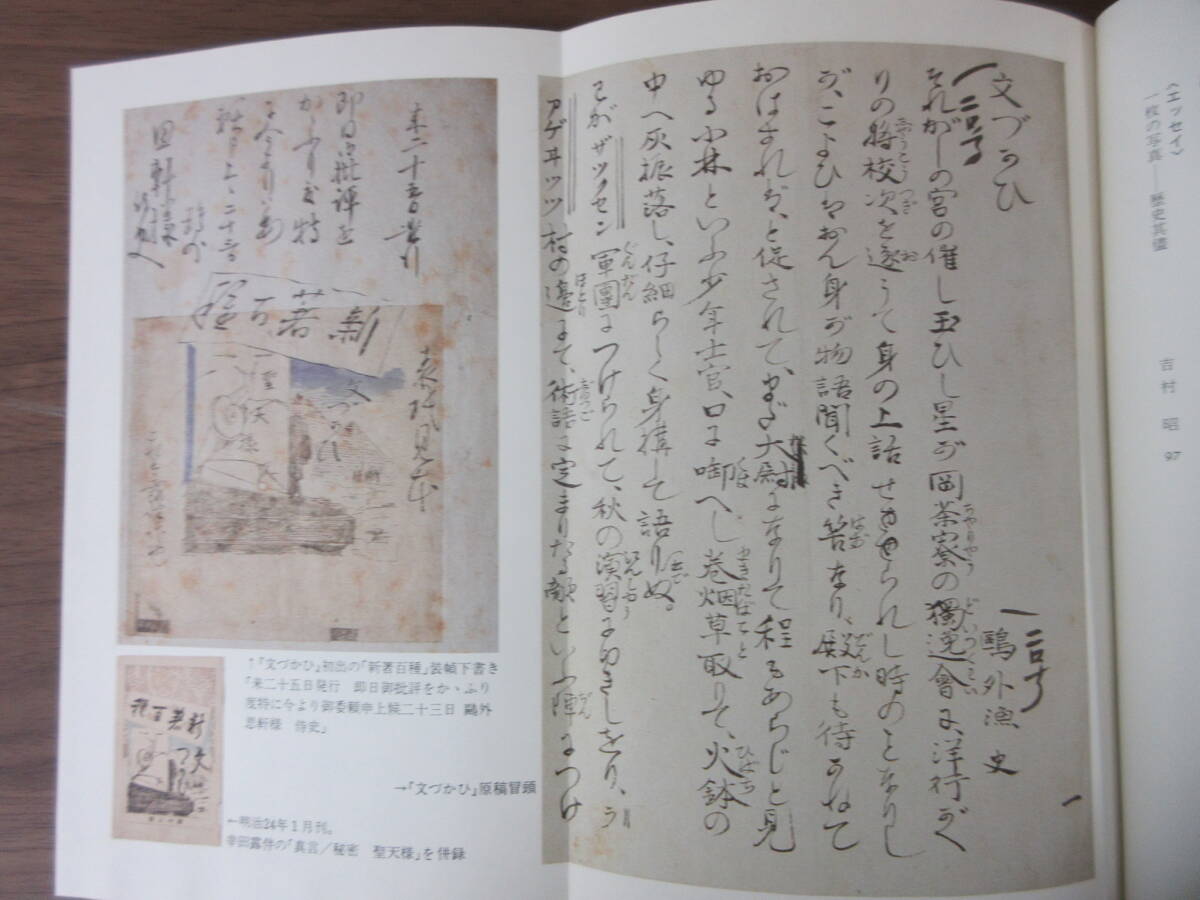 〈エッセイ〉
一枚の写真――歴史其儘
吉村 昭 97
文づかひ
鷗外漁史
それがしの宮の催し玉ひし星が岡茶寮の獨逸會に、洋行がへ
りの將校次を逐うて身の上話せられし時のことなりし
が、こよひはおん身が物語聞くべき筈なり、殿下も待かねて
おはすれば、と促されて、まだ大尉になりて程もあらじと見
ゆる小林といふ少年士官、口に啣へし巻烟草取りて、火鉢の
中へ灰振落し、仔細らしく身構して語りぬ。
わがザツクセン軍團につけられて、秋の演習にゆきしをり、ラ
アゲヰツツ村の邊にて、術語に定まりたる敵といふ陣につけ
来二十五日発行
即日御批評を
かゝふり度特
に今より御委
頼申上候二十三日
鷗外
思軒様
侍史
新著百種
表紙見本
文づかひ
聖天様
↑『文づかひ』初出の「新著百種」装幀下書き
「来二十五日発行 即日御批評をかゝふり
度特に今より御委頼申上候二十三日 鷗外
思軒様 侍史」
→『文づかひ』原稿冒頭
新著百種
文づかひ
←明治24年1月刊。
幸田露伴の「真言/秘密 聖天様」を併録